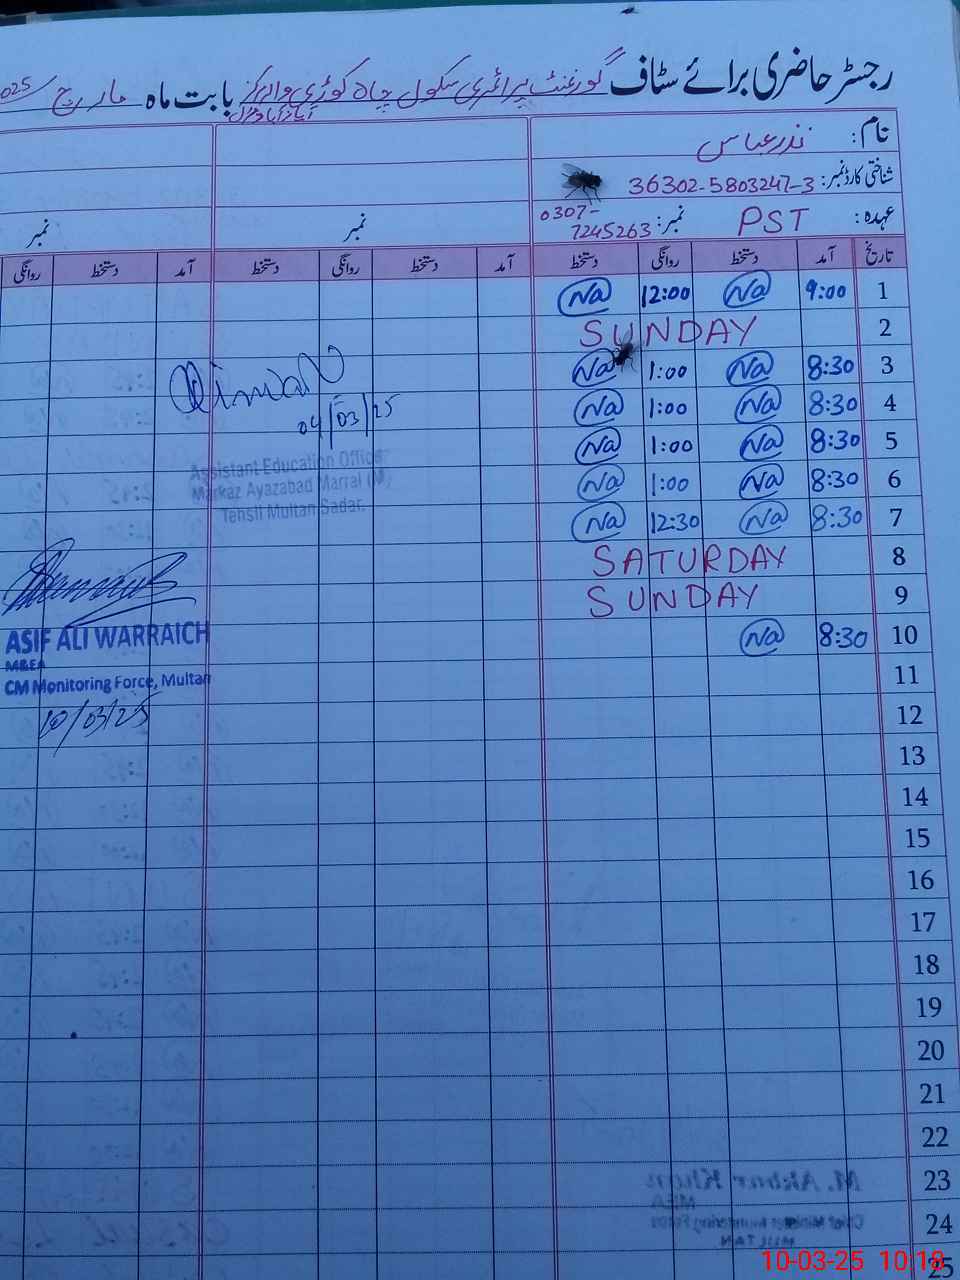 رجسٹر حاضری برائے سٹاف گورنمنٹ پرائمری سکول چاہ کوڑی والہ مرکز بابت ماہ مارچ 025
ایاز آباد مڑل
نام: نذر عباس
شناختی کارڈ نمبر: 36302-5803247-3
عہدہ: PST نمبر: 0307-7245263
نمبر
نمبر
تاریخ آمد دستخط روانگی دستخط آمد دستخط روانگی دستخط آمد دستخط روانگی
1 9:00 Na 12:00 Na
2 SUNDAY
3 8:30 Na 1:00 Na
4 8:30 Na 1:00 Na
04/03/25
5 8:30 Na 1:00 Na
Assistant Education Officer
6 8:30 Na 1:00 Na
Markaz Ayazabad Marral (M)
Tehsil Multan Sadar.
7 8:30 Na 12:30 Na
8 SATURDAY
9 SUNDAY
10 8:30 Na
ASIF ALI WARRAICH
MEA
CM Monitoring Force, Multan
10/03/25
11
12
13
14
15
16
17
18
19
20
21
22
23
24
25
M. Akbar Khan
MEA
Chief Minister Monitoring Force
MULTAN
10-03-25 10:18